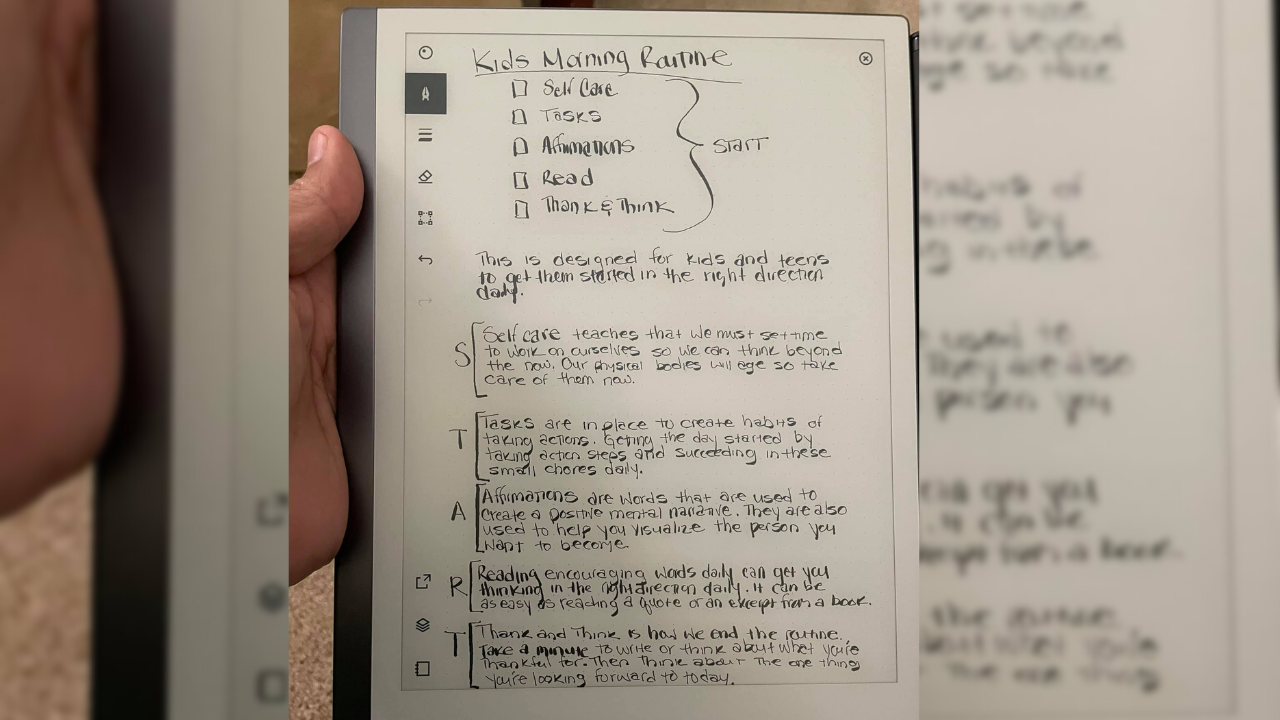 Kids Morning Routine
Self Care
Tasks
Affirmations
Read
Thank & Think
START
This is designed for kids and teens
to get them started in the right direction
daily.
S
Self care teaches that we must set time
to work on ourselves so we can think beyond
the now. Our physical bodies will age so take
care of them now.
T
Tasks are in place to create habits of
taking actions. Getting the day started by
taking action steps and succeeding in these
small chores daily.
A
Affirmations are words that are used to
create a positive mental narrative. They are also
used to help you visualize the person you
want to become.
R
Reading encouraging words daily can get you
thinking in the right direction daily. It can be
as easy as reading a quote or an excerpt from a book.
T
Thank and Think is how we end the routine.
Take a minute to write or think about what you're
thankful for. Then Think about The one thing
you're looking forward to today.